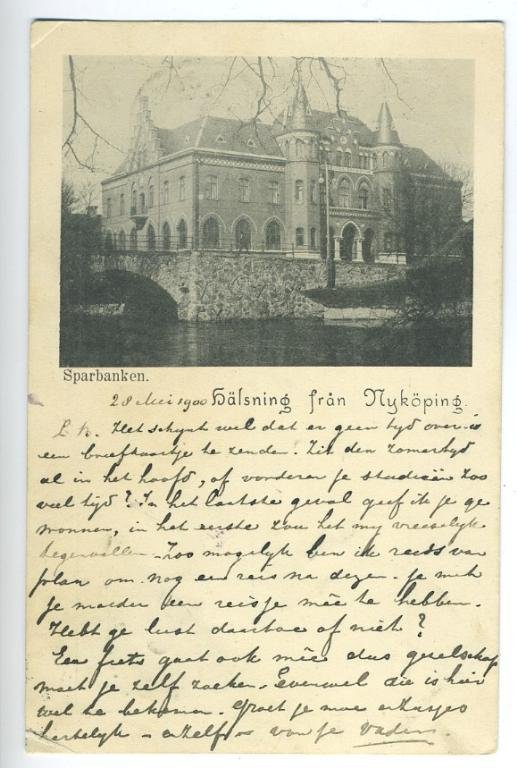 Sparbanken.
28 Mei 1900 Hälsning från Nyköping.
L. H. Het schynt wel dat er geen tyd over is
een briefkaartje te zenden. Zit den zomertyd
al in het hoofd, of vorderen je studieën zoo
veel tyd? In het laatste geval geef ik je ge
wonnen, in het eerste zou het my vreeselyk
tegenvallen. Zoo mogelyk ben ik reeds van
plan om nog een reis na dezen. je met
je moeder een reisje mêe te hebben.
Hebt ge lust daartoe of niet?
Een fiets gaat ook mêe dus gezelschap
moet je zelf zoeken. Evenwel die is hier
wel te bekomen. Groet je
hartelyk van je Vader.